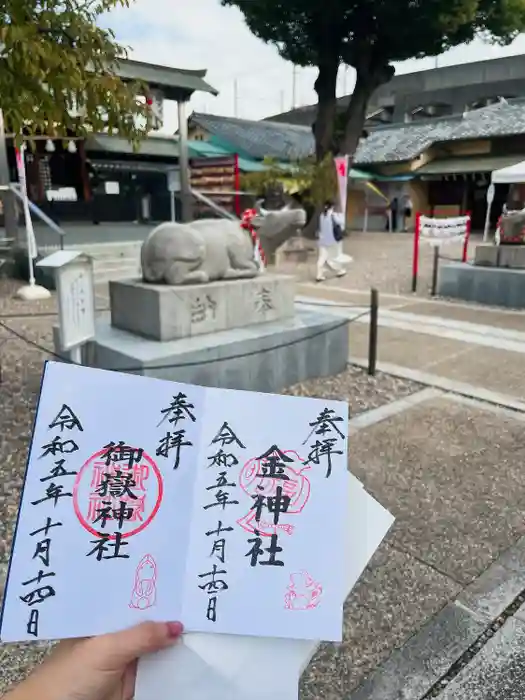 奉拝
金神社
令和五年十月十四日
奉拝
御嶽神社
令和五年十月十四日
奉